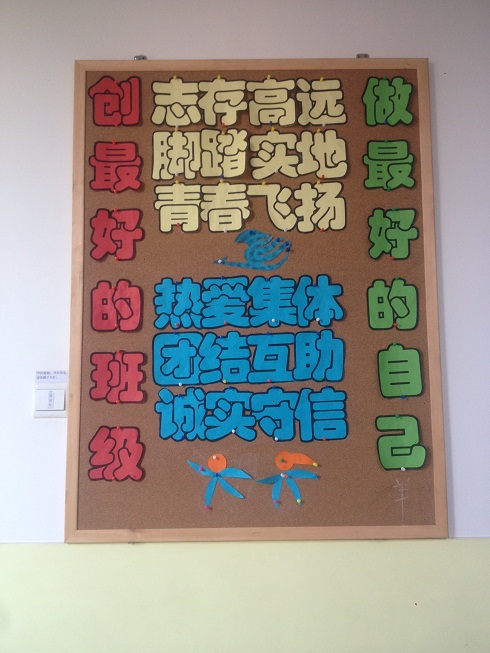 创最好的班级
志存高远
脚踏实地
青春飞扬
热爱集体
团结互助
诚实守信
做最好的自己